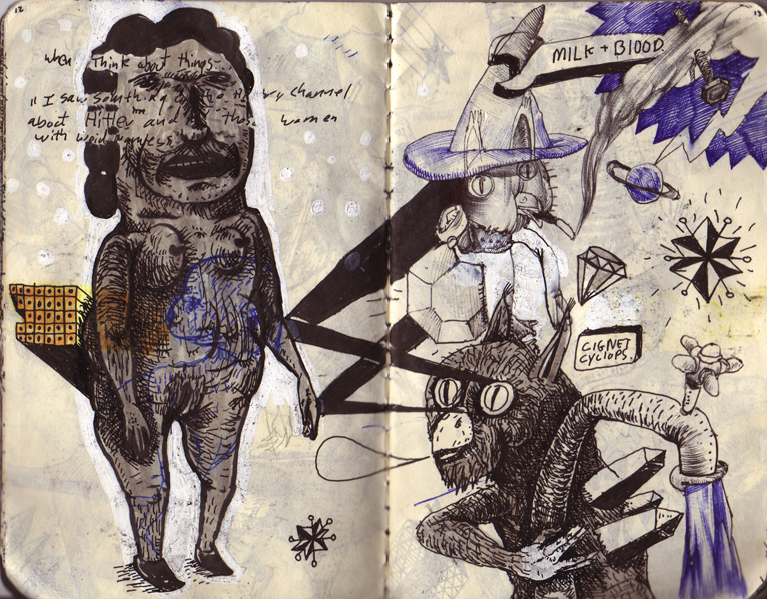 12
when I think about things-
"I saw something on the history channel
about Hitler and these women
with weird
MILK + BLOOD.
13
CIGNET
CYCLOPS.